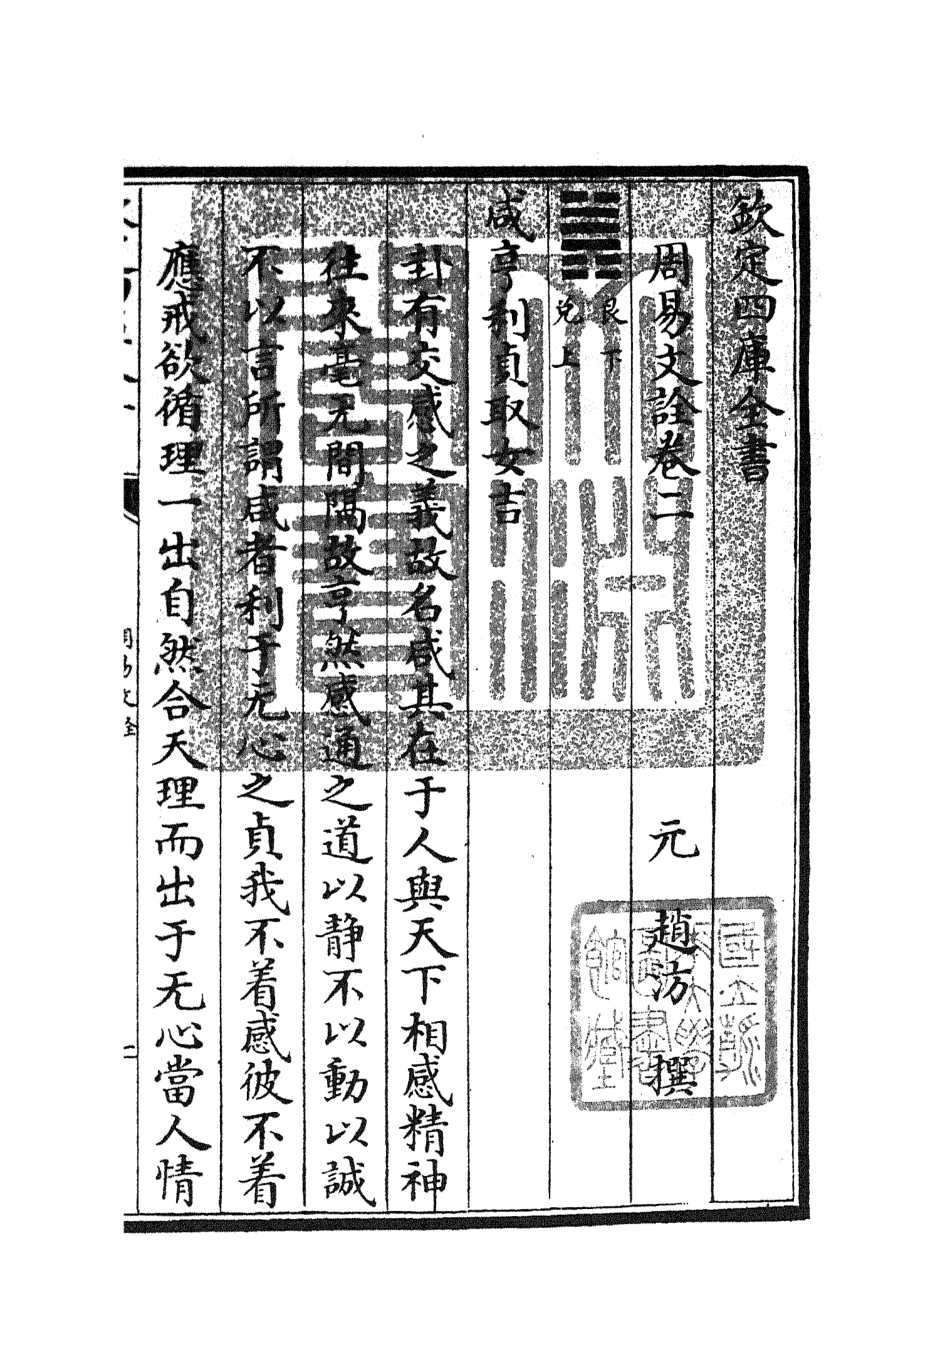 欽定四庫全書
周易文詮卷二
元 趙汸 撰
艮下
兌上
咸亨利貞取女吉
卦有交感之義故名咸其在于人與天下相感精神
往來毫无間隔故亨然感通之道以静不以動以誠
不以言所謂咸者利于无心之貞我不着感彼不着
應戒欲循理一出自然合天理而出于无心當人情